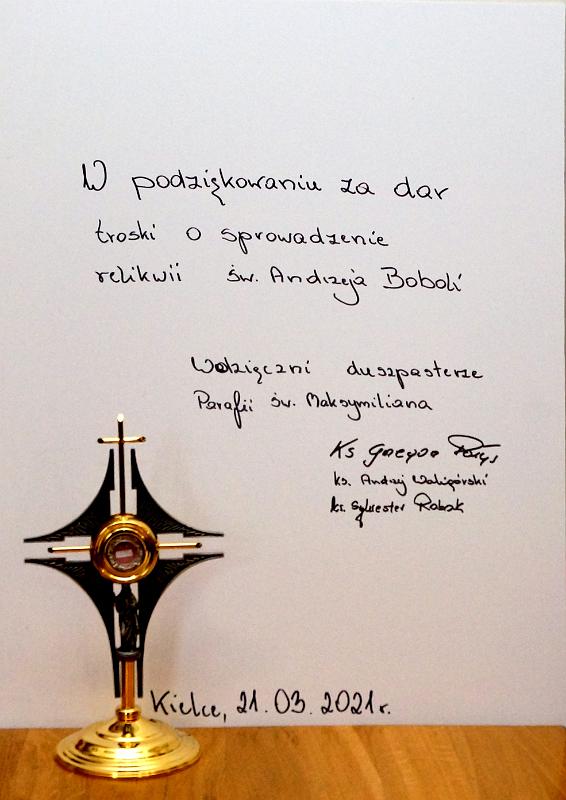 W podziękowaniu za dar
troski o sprowadzenie
relikwii św. Andrzeja Boboli
Wdzięczni duszpasterze
Parafii św. Maksymiliana
Ks
ks. Andrzej Waligórski
ks. Sylwester Robak
Kielce, 21.03.2021r.